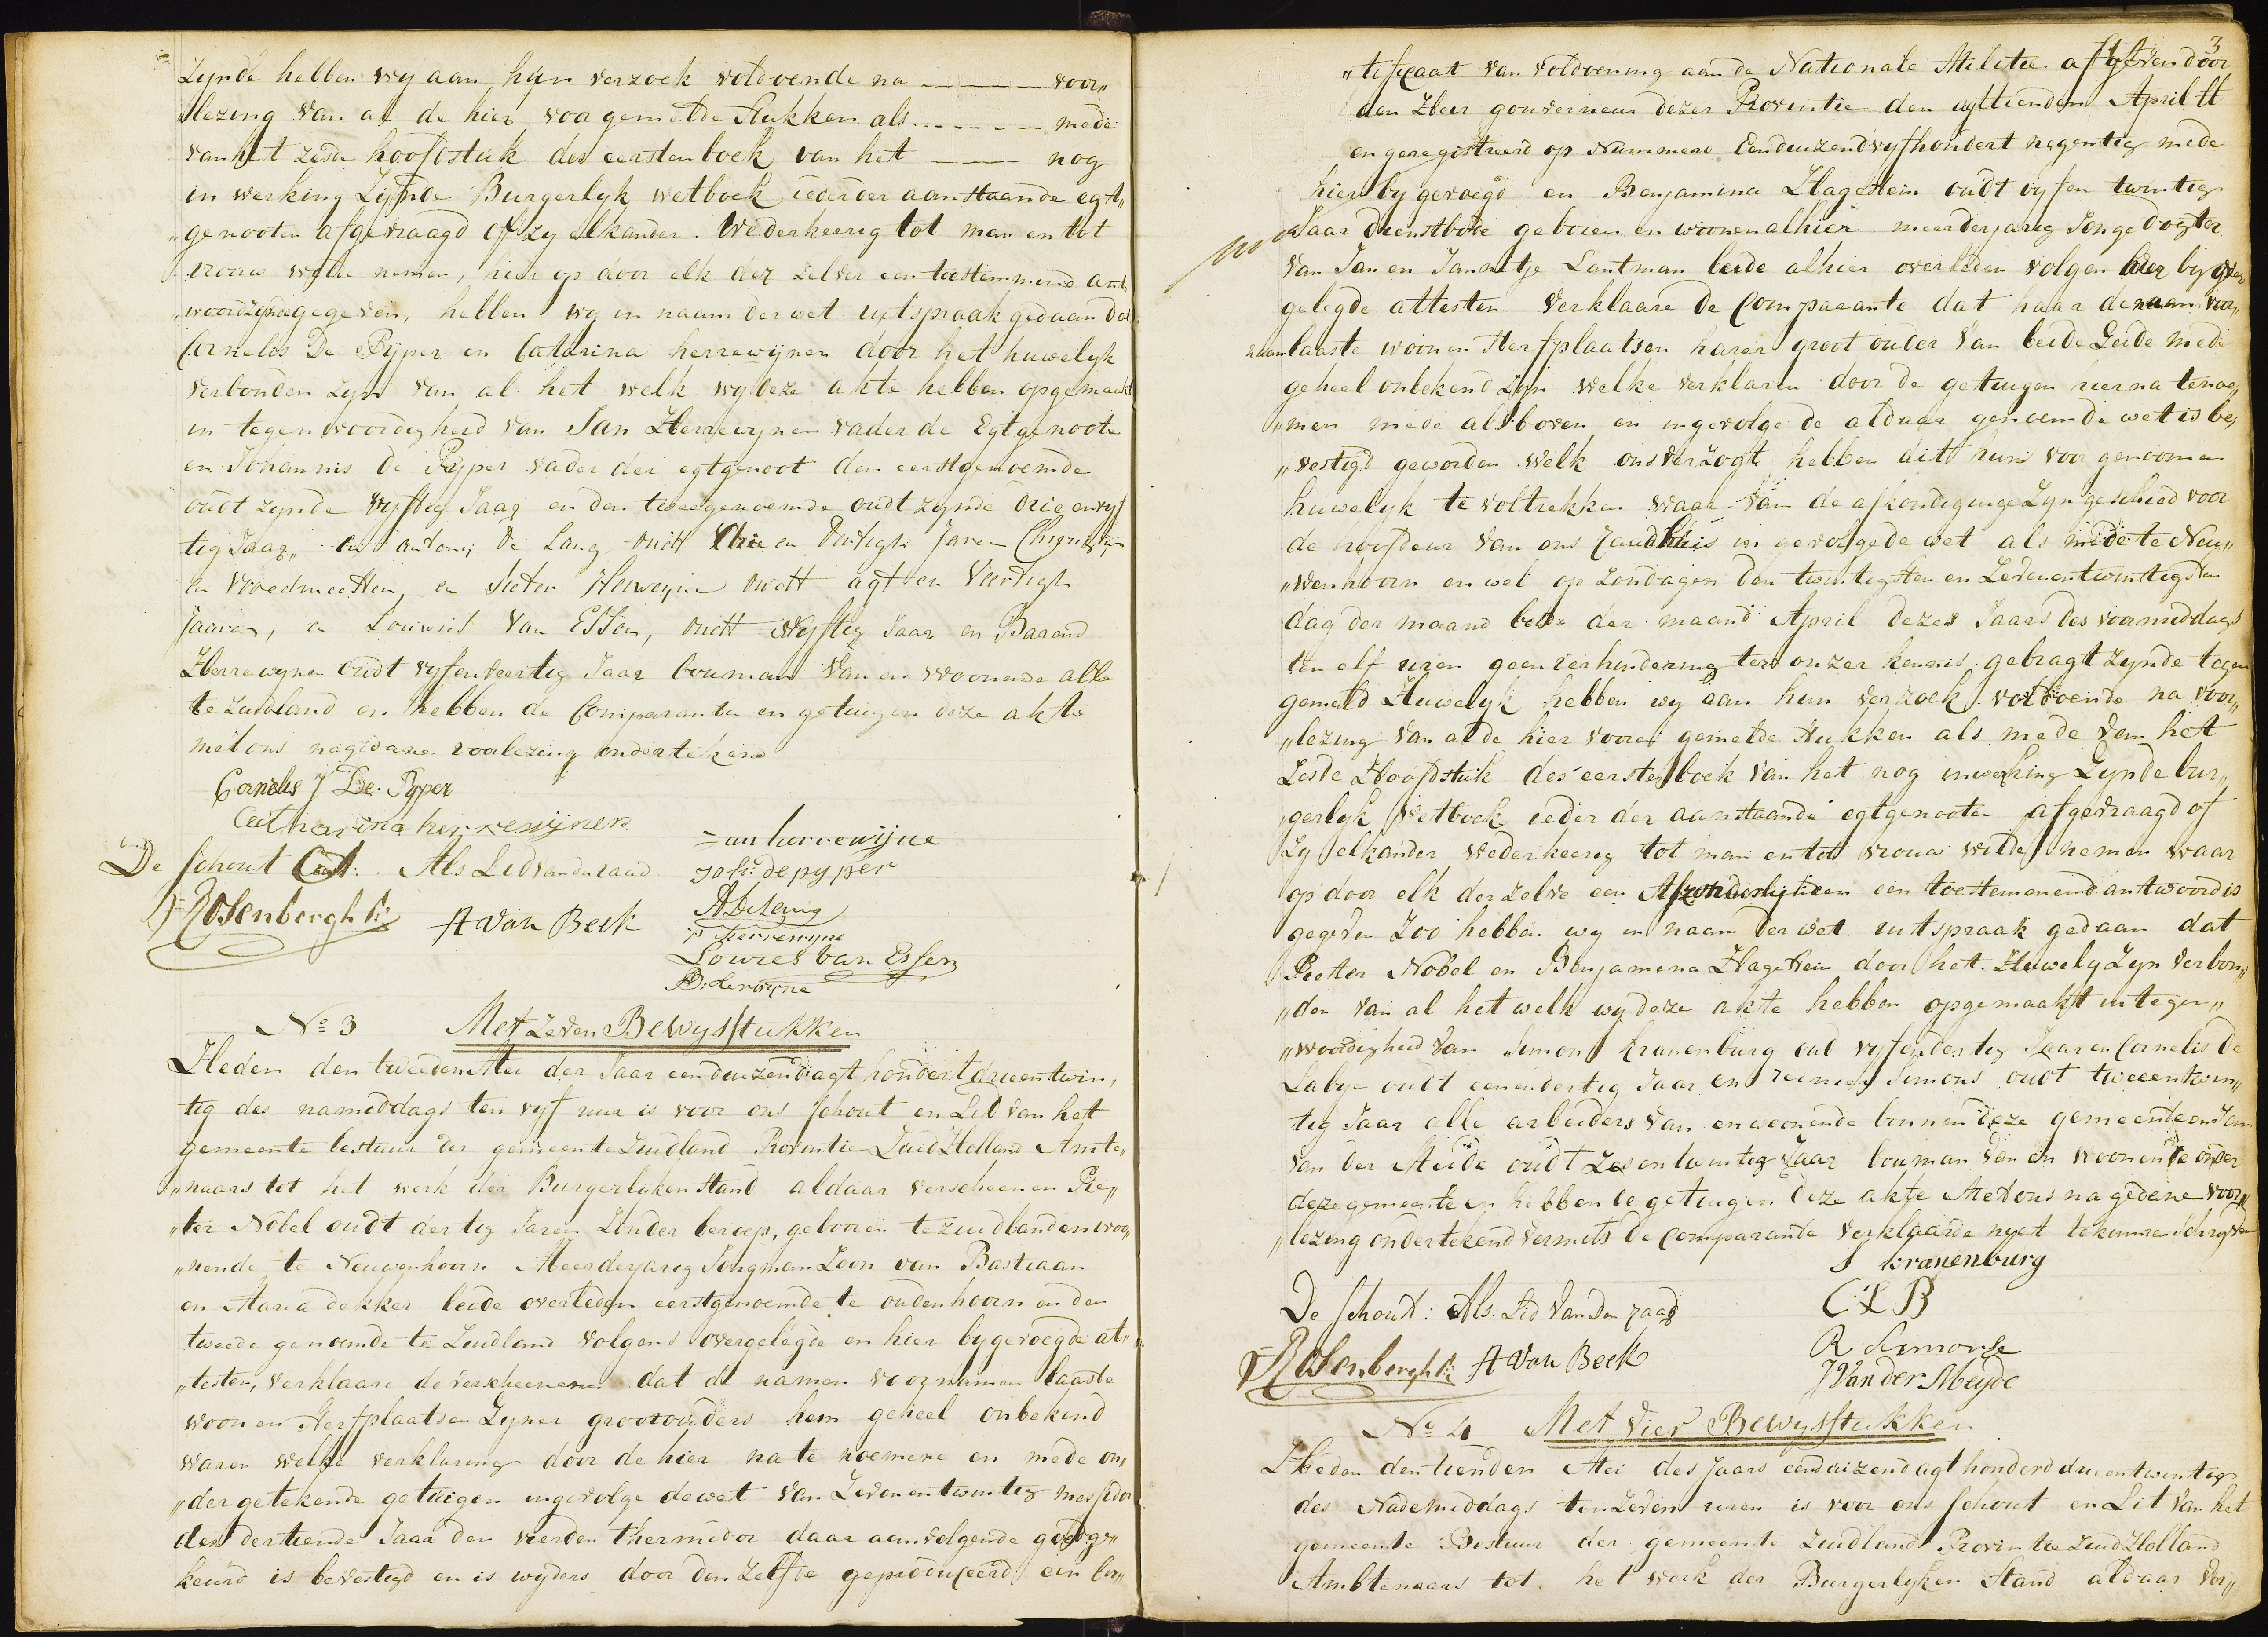 Zynde hebben wy aan hun verzoek voldoende na ——— voor„
„lezing van al de hier voor gemelde stukken als ------ mede
van het zesde hoofdstuk des eersten boek van het ——— nog
in werking zynde Burgerlyk wetboek ieder der aanstaande egt„
„genooten afgevraagd of zy elkander. Wederkeerig tot man en tot
vrouw wilde nemen, hier op door elk der zelver een toestemmend ant„
„woord zynde gegeven, hebben wy in naam der wet uitspraak gedaan dat
Cornelis De Pyper en Catarina herrewijnen door het huwelyk
verbonden zyn van al het welk wy deze akte hebben opgemaakt
in tegenwoordigheid van Jan Herrewynen vader de Egtgenoote
en Johannis de Pyper vader der egtgenoot den eerstgenoemde
oudt zynde vyftig Jaar en den tweedgenoemde oudt zynde drie en vyf
tig Jaar„ en antony de Lang oudt drie en Dertigh Jaren Chirurgyn
en vroedmeester, en Pieter Herweyne oudt agt en Veertigh
Jaaren, en Louwies Van Essen, oudt vyftig Jaar en Barend
Herrewynen oudt vyfenveertig Jaar bouman van en woonende alle
te Zuidland en hebben de Comparanten en getuigen deze akte
met ons nagedane voorlezing ondertekend
Cornelis J De Pyper
Catharina herrewijnen
Jan herrewijne
De Schout Als Lid van den raad joh: de pyper
J Rosenbergh A van Beek ADeLang
P Herrewyne
Lowies van Essen
B: Herwyne
No 3 Met zeven Bewysstukken
Heden den tweeden Mei der Jaar eenduizendagt hondert drieentwin„
tig des namiddags ten vyf uur is voor ons Schout en Lid van het
gemeente bestuur der gemeente Zuidland Provintie Zuid Holland Amte„
„naars tot het werk der Burgerlijken Stand aldaar verscheenen Pie„
„ter Nobel oudt dertig Jaren Zonder beroep, gebooren te zuidland en woo„
„nende te Nieuwenhoorn Meerderjarig Jongman Zoon van Bastiaan
en Maria dekker beide overleden eerstgenoemde te oudenhoorn en den
tweede genoemde te Zuidland volgens overgelegde en hier bygevoegde at„
„testen, verklaare de verscheenene dat de namen voornamen laaste
woon en Sterfplaatsen Zyner grootouders hem geheel onbekend
waren welke verklaring door de hier na te noemene en mede on„
„dergetekende getuigen ingevolge de wet van Zevenentwintig messidor
des dertiende Jaar den vierden thermidor daar aanvolgende goedge„
keurd is bevestigd en is wyders door den Zelfde geproduceerd een cer„
3
„tificaat van voldoening aan de Nationale Militie afgeven door
den Heer gouverneur dezer Provintie den agttienden April ll
en geregistreerd op Nummero Eenduizend vyfhondert negentig mede
hier by gevoegd en Benjamina Hagestein oudt vyfen twintig
Jaar dienstbode geboren en woonen alhier meerderjarig Jonge dogter
van Jan en Jannetje Lantman beide alhier overleden volgen hier by over
gelegde attesten Verklaare de Comparante dat haar de naam voor„
naam laaste woon en Sterfplaatsen harer groot ouder van beide Zeide mede
geheel onbekend Zyn welke verklaren door de getuigen hierna tenoe„
„men mede als boven en ingevolge de aldaar genoemde wet is be„
„vestigd geworden welk ons verzogt hebben dit hun voor genoomen
huwelyk te voltrekken waar van de afkondiginge Zyn geschied voor
de hoofdeur van ons raadhuis in gevolge de wet als mede te Nieu„
„wenhoorn en wel op Zondagen den twintigsten en Zevenentwintigsten
dag der maand beide der maand April dezes Jaars des voormiddags
ten elf uren geen verhindering ter onzer kennis gebragt zynde tegen
gemeld Huwelyk hebben wy aan hun verzoek voldoende na voor„
„lezing van al de hier vooren gemelde Stukken als mede van het
Zesde Hoofdstuk des eersten boek van het nog in werking Zynde bur„
„gerlyk Wetboek ieder der aanstaande egtgenooten afgevraagd of
Zy elkander wederkeerig tot man en tot vrouw wilde nemen waar
op door elk der zelve een Afzonderlyk een toestemmend antwoord is
gegeven Zoo hebben wy in naam der wet uitspraak gedaan dat
Pieter Nobel en Benjamina Hagestein door het Huwelyk Zyn verbon„
„den van al het welk wy deze akte hebben opgemaakt in tegen„
„woordigheid van Simon Kranenburg oud vyfendertig Jaar en Cornelis De
Labye oudt eenendertig Jaar en reinier Simons oudt tweeentwin„
tig Jaar alle arbeiders van en woonende binnen deze gemeente en Jan
Van der Meide oudt zesentwintig Jaar bouman van en woonende onder
deze gemeente en hebben de getuigen deze akte Met ons na gedane voor„
„lezing ondertekend vermits de Comparante verklaarde niet te kunnen Schryven
S kranenburg
De Schout: Als: Lid van den raad C L B
J Rosenbergh A van Beek R Simonse
J Van der Meyde
No 4 Met vier Bewysstukken
Heden den tienden Mei des Jaars eenduizendagt honderd drieentwintig
des Nademiddags ten Zeven uren is voor ons Schout en Lit van het
gemeente Bestuur der gemeente Zuidland Provintie Zuid Holland
Ambtenaars tot het werk der Burgerlyken Stand aldaar ver„